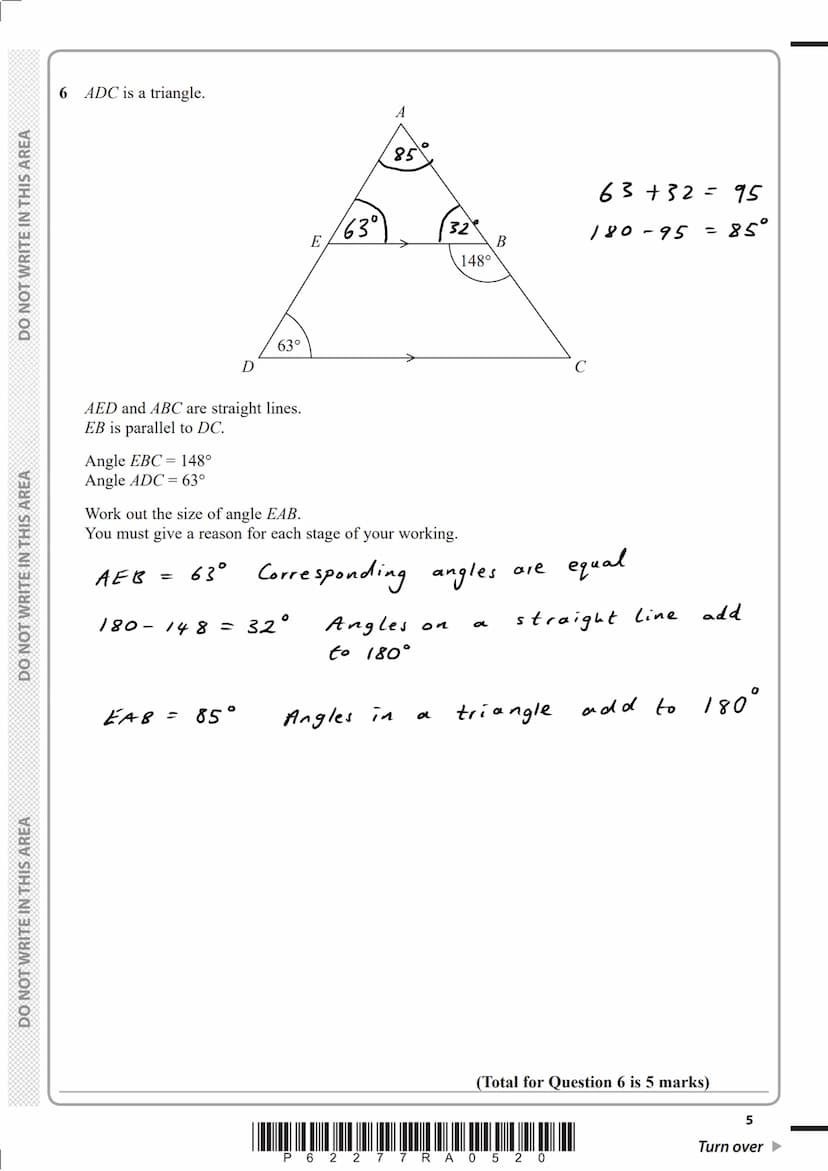 DO NOT WRITE IN THIS AREA
DO NOT WRITE IN THIS AREA
DO NOT WRITE IN THIS AREA
6 ADC is a triangle.
A
85°
63 + 32 = 95
180 - 95 = 85°
E 63° 32° B
148°
63°
D C
AED and ABC are straight lines.
EB is parallel to DC.
Angle EBC = 148°
Angle ADC = 63°
Work out the size of angle EAB.
You must give a reason for each stage of your working.
AEB = 63° Corresponding angles are equal
180 - 148 = 32° Angles on a straight line add
to 180°
EAB = 85° Angles in a triangle add to 180°
(Total for Question 6 is 5 marks)
5
P 6 2 2 7 7 R A 0 5 2 0
Turn over